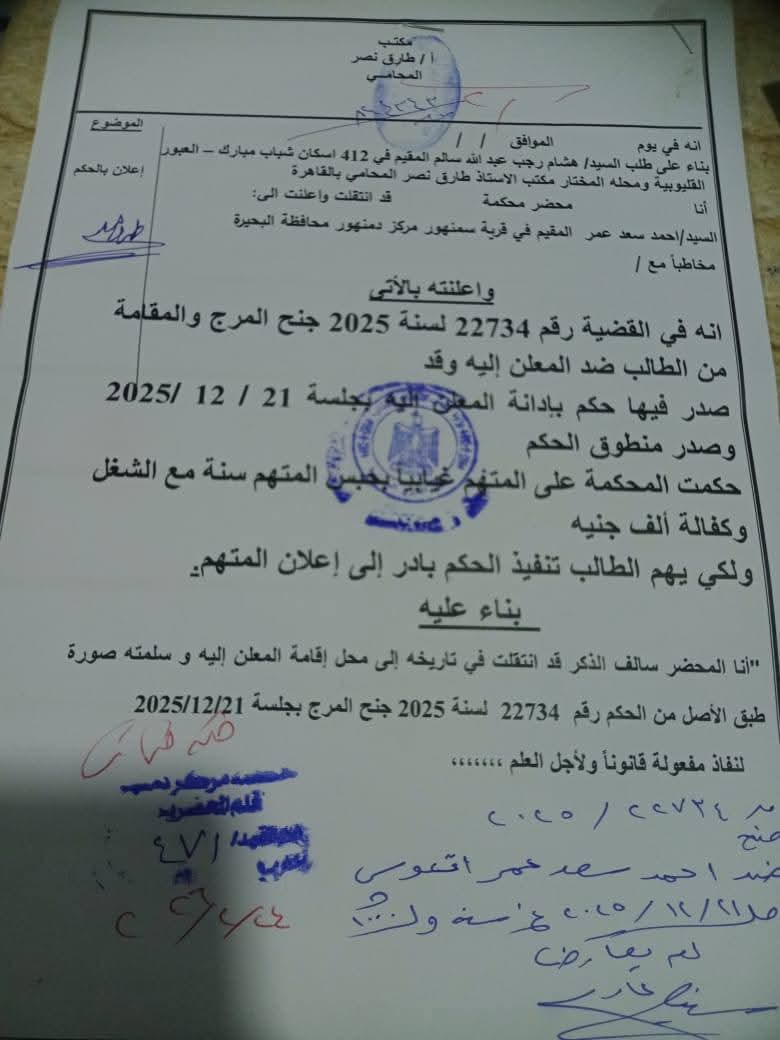 مكتب
أ / طارق نصر
المحامي
الموضوع
إعلان بالحكم
انه في يوم الموافق / /
بناء على طلب السيد/ هشام رجب عبد الله سالم المقيم في 412 اسكان شباب مبارك – العبور
القليوبية ومحله المختار مكتب الاستاذ طارق نصر المحامي بالقاهرة
أنا محضر محكمة قد انتقلت واعلنت الى:
السيد/احمد سعد عمر المقيم في قرية سمنهور مركز دمنهور محافظة البحيرة
مخاطباً مع /
واعلنته بالآتي
انه في القضية رقم 22734 لسنة 2025 جنح المرج والمقامة
من الطالب ضد المعلن إليه وقد
صدر فيها حكم بإدانة المعلن إليه بجلسة 21 / 12 /2025
وصدر منطوق الحكم
حكمت المحكمة على المتهم غيابياً بحبس المتهم سنة مع الشغل
وكفالة ألف جنيه
ولكي يهم الطالب تنفيذ الحكم بادر إلى إعلان المتهم.
بناء عليه
"أنا المحضر سالف الذكر قد انتقلت في تاريخه إلى محل إقامة المعلن إليه و سلمته صورة
طبق الأصل من الحكم رقم 22734 لسنة 2025 جنح المرج بجلسة 2025/12/21
لنفاذ مفعولة قانوناً ولأجل العلم ،،،،،،،
٢٢٧٣٤ / ٢٠٢٥
جنح
ضد احمد سعد عمر
٢١/١٢/٢٠٢٥
لم يعارض
٤٧١